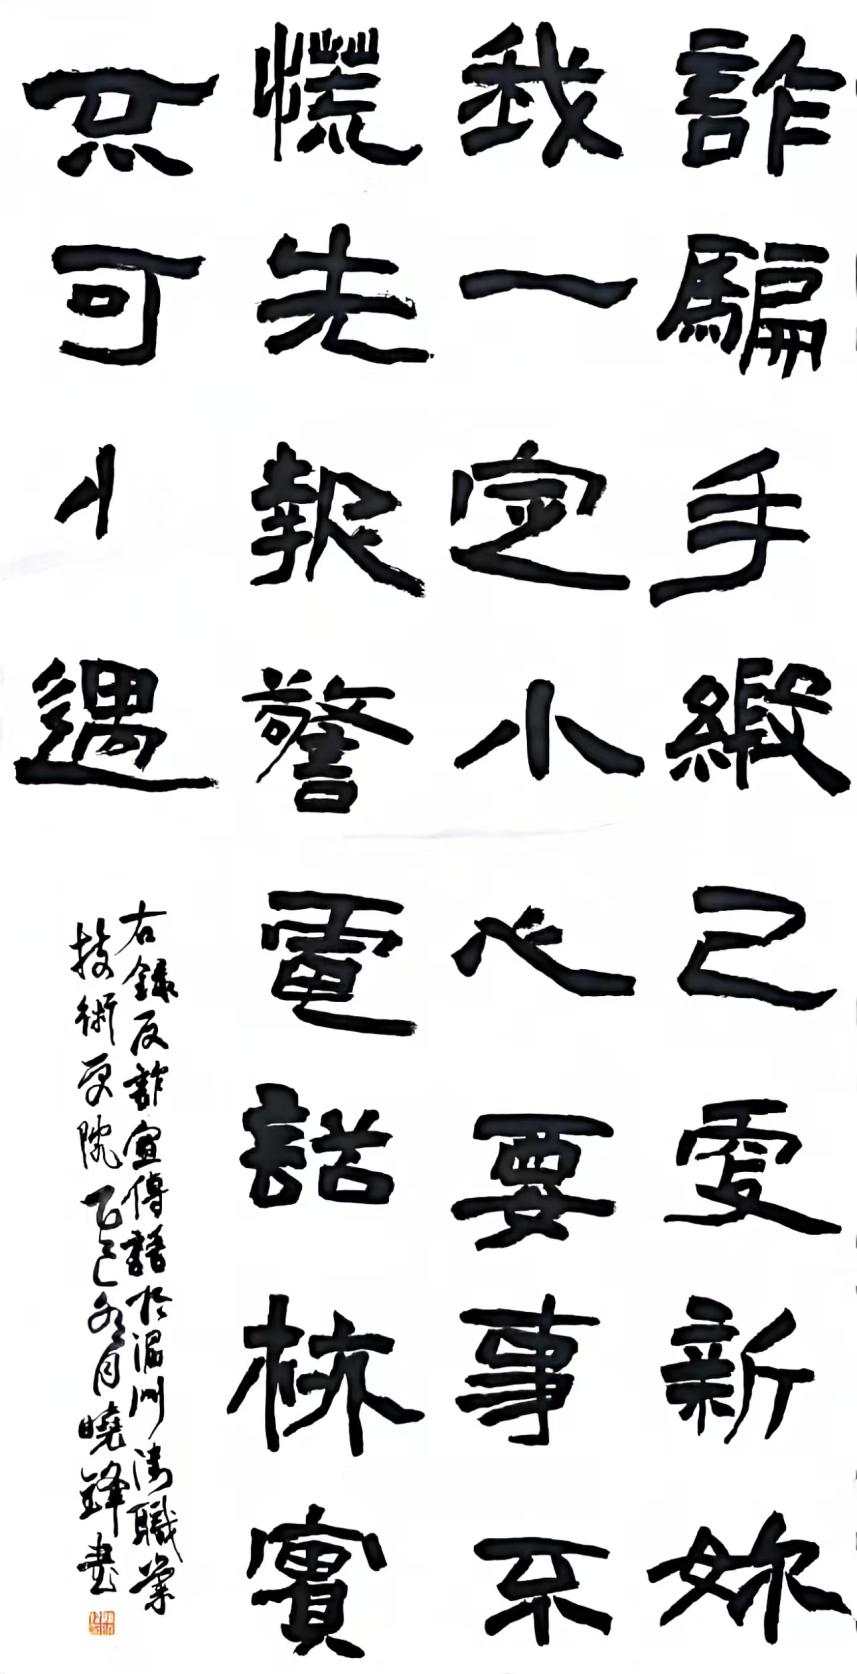 詐騙手緞己新妳
我一定小心要事不
慌先報警電話核實
可遇
右錄反詐宣傳語於溫州職業
技術學院乙巳冬月曉鋒書